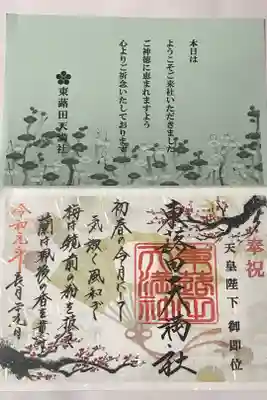 本日は
ようこそご来社いただきました
ご神徳に恵まれますよう
心よりご祈念いたしております
東蕗田天満社
奉祝
天皇陛下 御即位
東蕗田天満社
東蕗田天満社
初春の令月にして
気淑く風和ぎ
梅は鏡前の粉を披き
蘭は珮後の香を薫す
令和元年